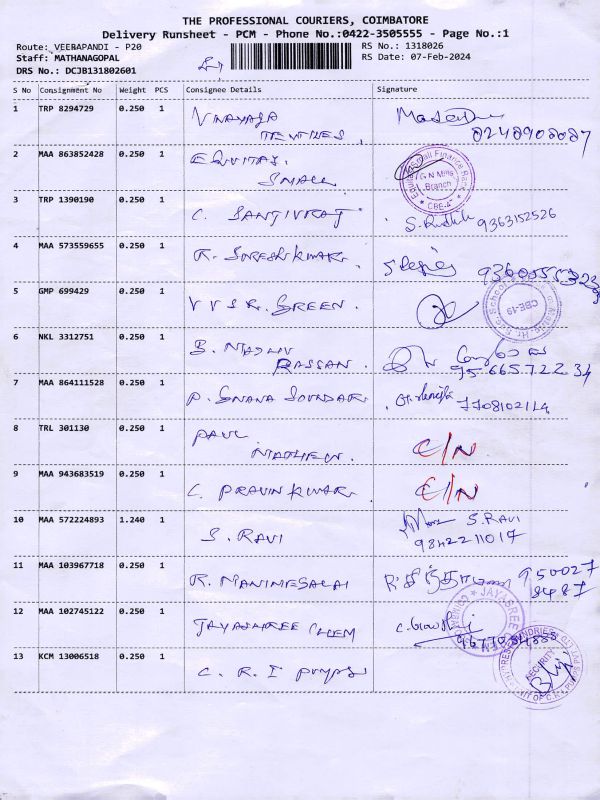 THE PROFESSIONAL COURIERS, COIMBATORE
Delivery Runsheet - PCM - Phone No.:0422-3505555 - Page No.:1
Route: VEERAPANDI - P20
RS No.: 1318026
Staff: MATHANAGOPAL
RS Date: 07-Feb-2024
DRS No.: DCJB131802601
S No Consignment No Weight PCS Consignee Details Signature
1 TRP 8294729 0.250 1 VINAYAGA
TEXTILES
8248908087
2 MAA 863852428 0.250 1 EQUITAS
SMALL
Equitas Small Finance Bank
G N Mills
Branch
CBE
3 TRP 1390190 0.250 1 C. SANJIVRAJ 9363152526
4 MAA 573559655 0.250 1 R. SURESH KUMAR
5 GMP 699429 0.250 1 V V S R. GREEN
CBE-19
6 NKL 3312751 0.250 1 B. MADHV
RASSAN
9566572234
7 MAA 864111528 0.250 1 P. GNANA SOUNDAR
8 TRL 301130 0.250 1 PAUL
MATHEW C/N
9 MAA 943683519 0.250 1 C. PRAVIN KUMAR C/N
10 MAA 572224893 1.240 1 S. RAVI S. RAVI
9842211017
11 MAA 103967718 0.250 1 R. MANIMEGALAI 950027
8487
12 MAA 102745122 0.250 1 JAYASHREE CHEM
JAYASREE
13 KCM 13006518 0.250 1 C. R. I PUMPS
SECURITY